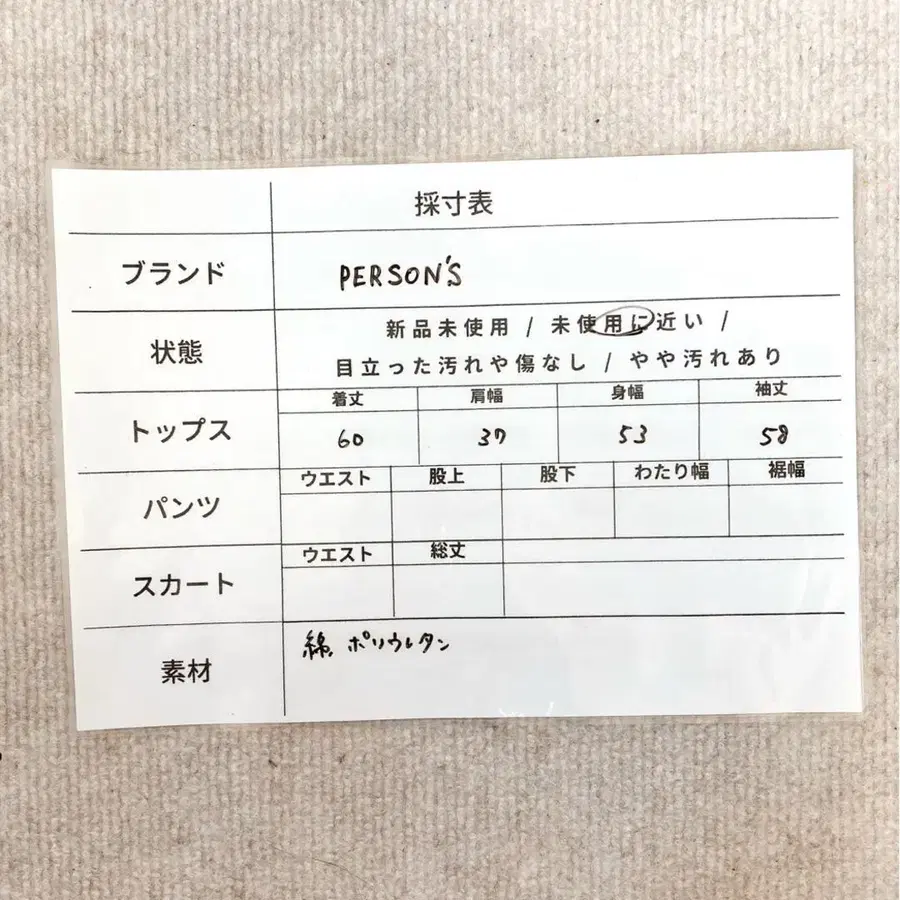 採寸表
ブランド PERSON'S
状態 新品未使用 / 未使用に近い /
目立った汚れや傷なし / やや汚れあり
トップス 着丈 肩幅 身幅 袖丈
60 37 53 58
パンツ ウエスト 股上 股下 わたり幅 裾幅
スカート ウエスト 総丈
素材 綿、ポリウレタン